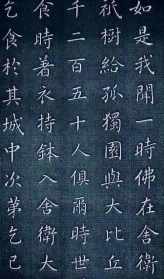 如是我聞一時佛在舍衛
祇樹給孤獨園與大比丘
千二百五十人俱爾時世
食時著衣持鉢入舍衛大
乞食於其城中次第乞已